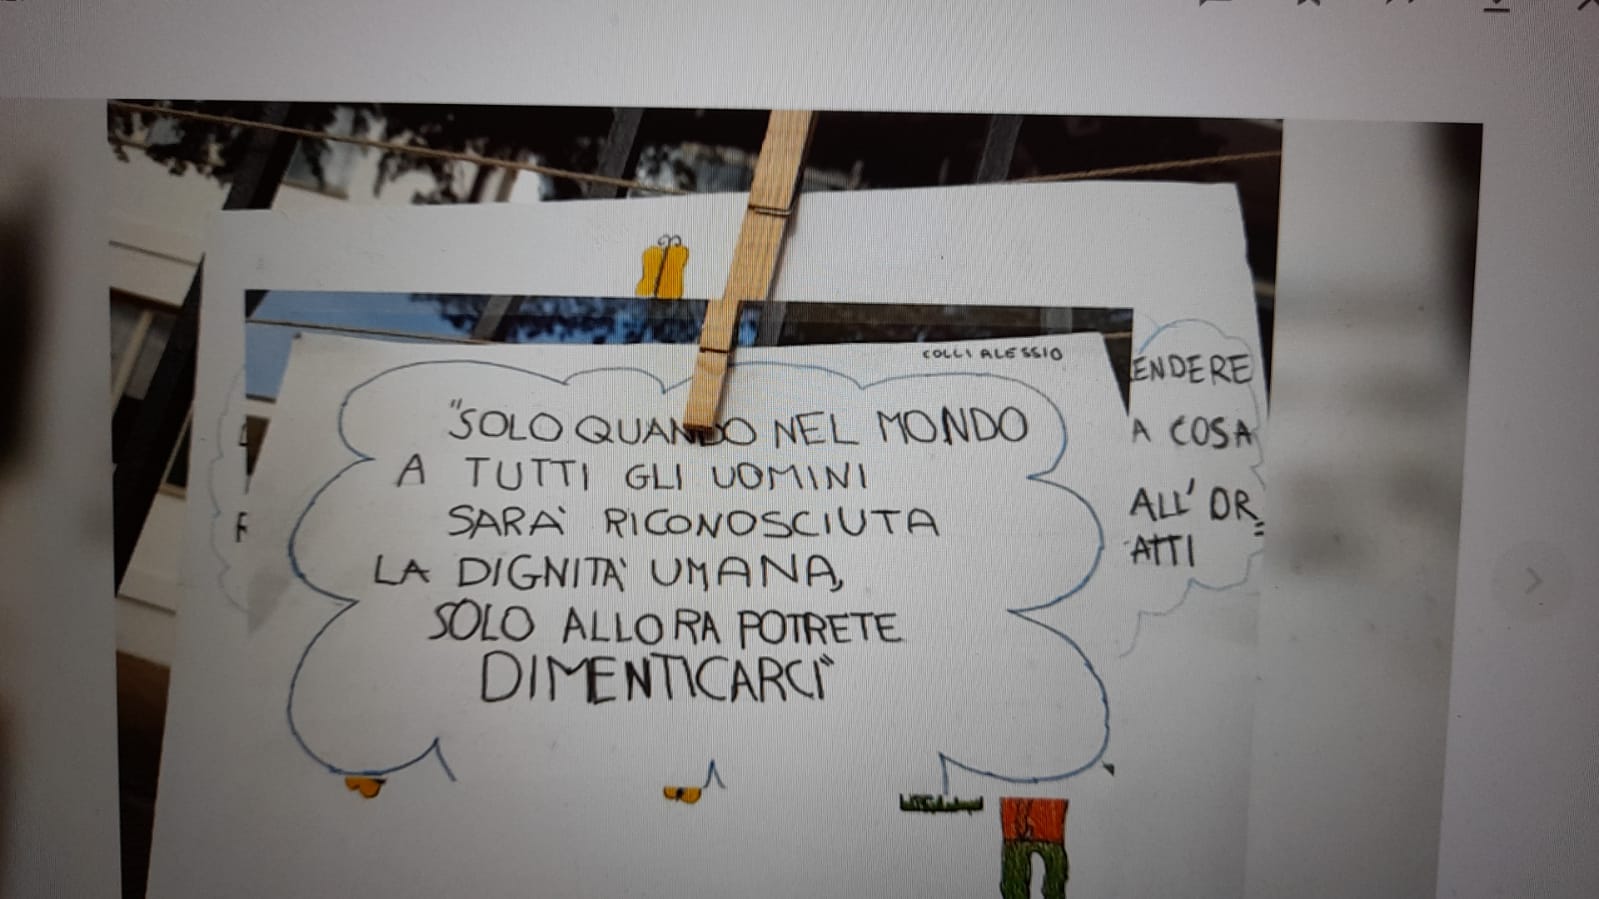 COLLI ALESSIO
"SOLO QUANDO NEL MONDO
A TUTTI GLI UOMINI
SARA' RICONOSCIUTA
LA DIGNITA' UMANA,
SOLO ALLORA POTRETE
DIMENTICARCI"
ENDERE
A COSA
ALL' OR
ATTI